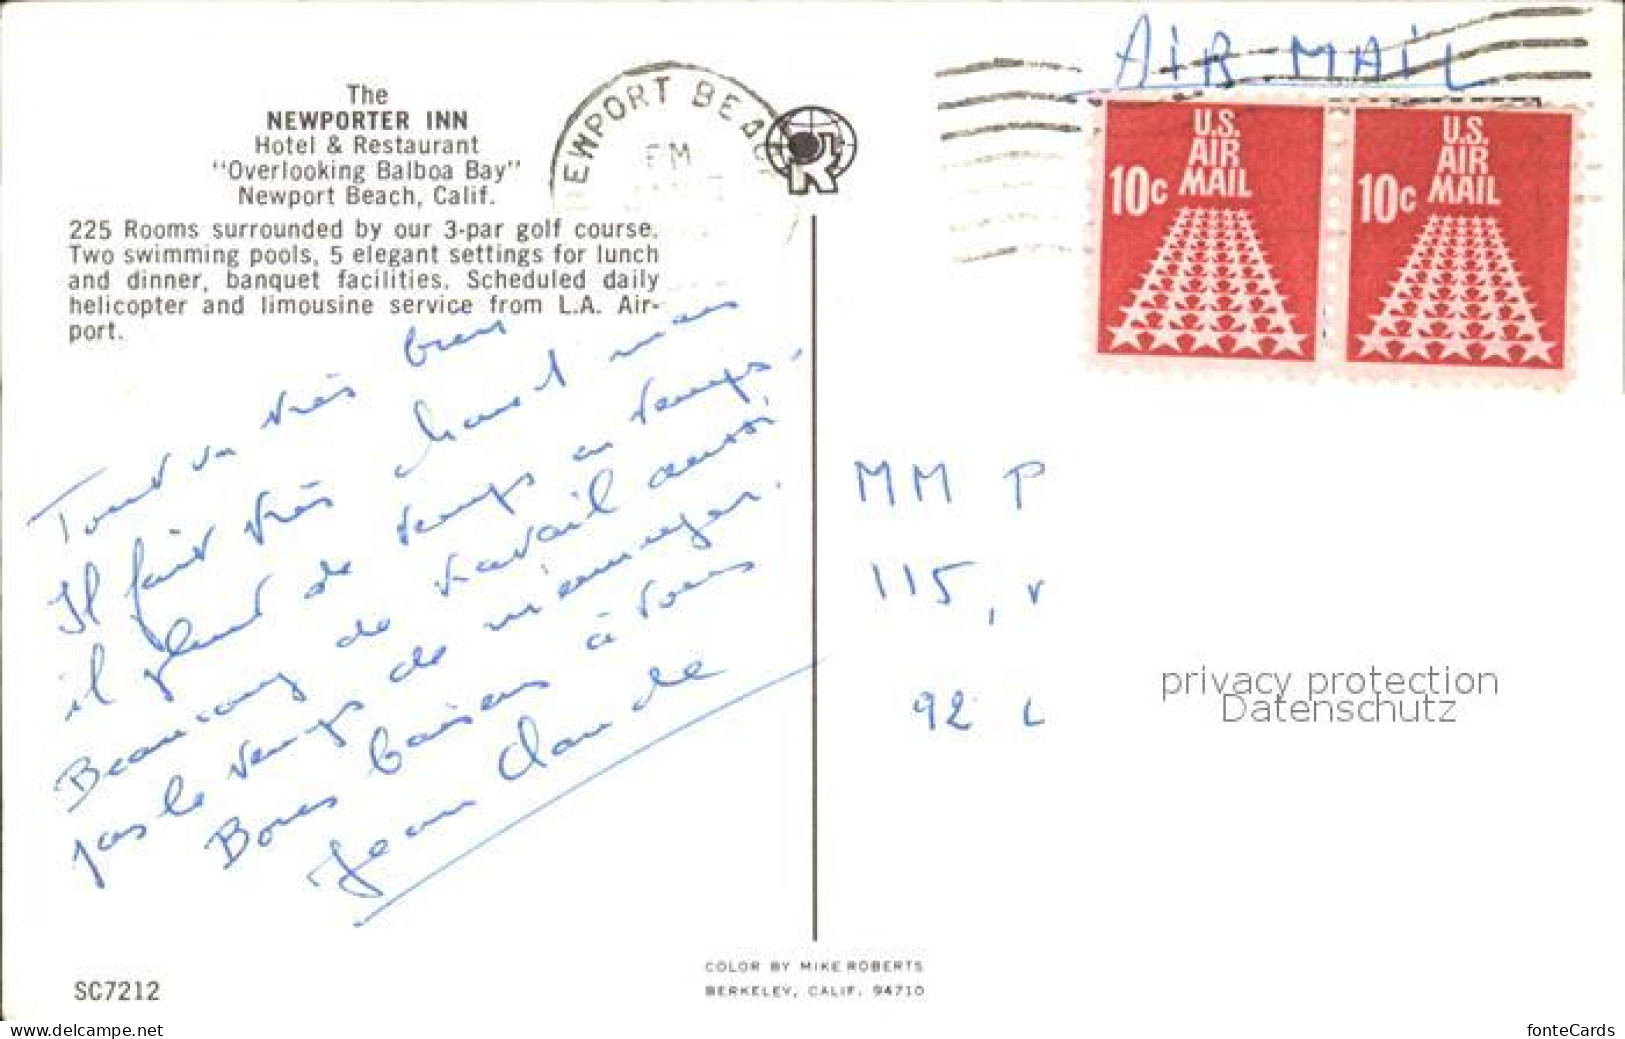 The
NEWPORTER INN
Hotel & Restaurant
"Overlooking Balboa Bay"
Newport Beach, Calif.
225 Rooms surrounded by our 3-par golf course.
Two swimming pools, 5 elegant settings for lunch
and dinner, banquet facilities. Scheduled daily
helicopter and limousine service from L.A. Air-
port.
Tout va très bien
Il fait très chaud mais
il pleut de temps en temps,
Beaucoup de travail aussi
pas le temps de m'ennuyer.
Bons baisers à tous
Jean Claude
SC7212
EWPORT BEAC
PM
AIR MAIL
U.S.
AIR
MAIL
10c
U.S.
AIR
MAIL
10c
MM P
115, r
92 L
privacy protection
Datenschutz
COLOR BY MIKE ROBERTS
BERKELEY, CALIF. 94710
www.delcampe.net
fonteCards